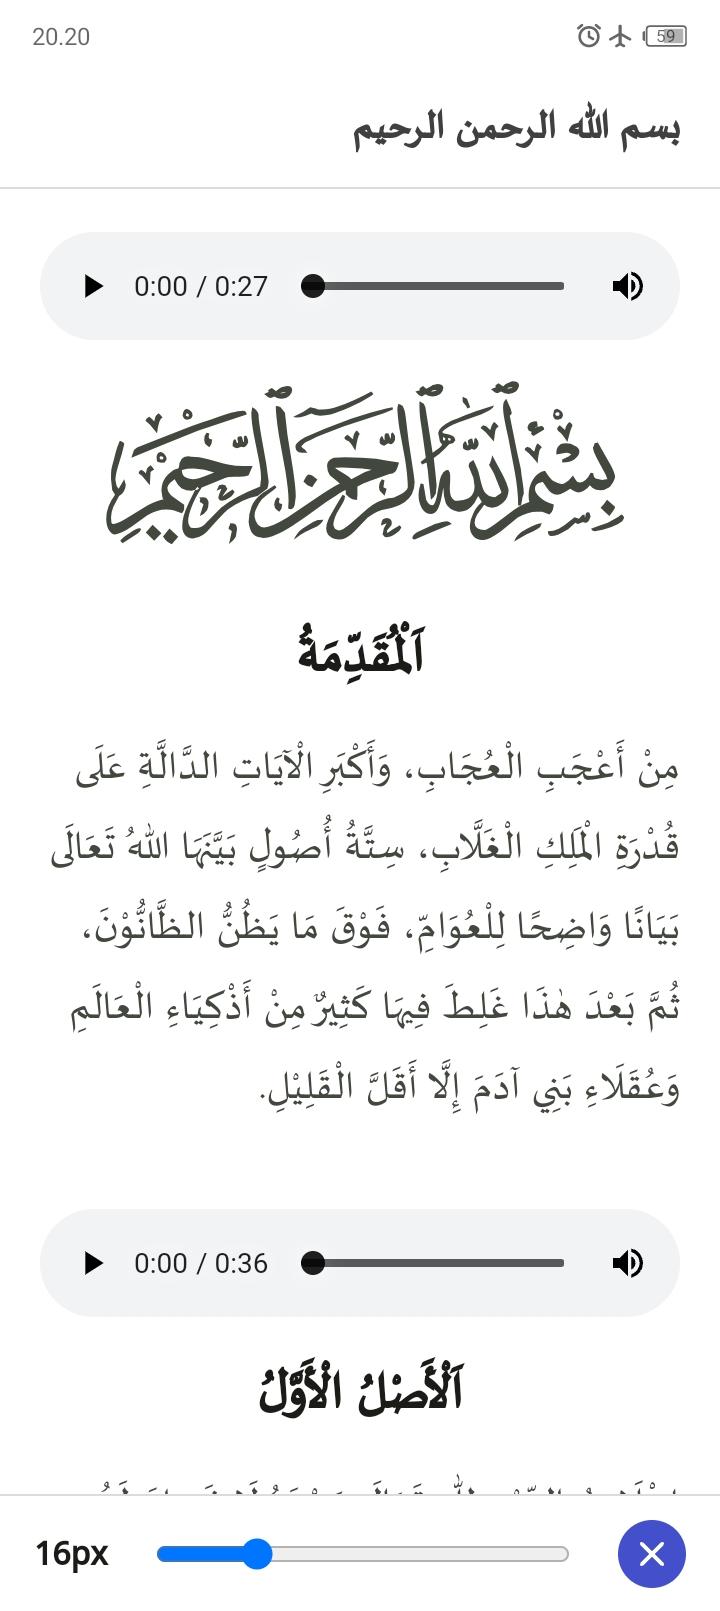 20.20
59
بسم الله الرحمن الرحيم
0:00 / 0:27
بِسْمِ ٱللَّهِ ٱلرَّحْمَٰنِ ٱلرَّحِيمِ
اَلْمُقَدِّمَةُ
مِنْ أَعْجَبِ الْعُجَابِ، وَأَكْبَرِ الْآيَاتِ الدَّالَّةِ عَلَى
قُدْرَةِ الْمَلِكِ الْغَلَّابِ، سِتَّةُ أُصُولٍ بَيَّنَهَا اللهُ تَعَالَى
بَيَانًا وَاضِحًا لِلْعُوَامِّ، فَوْقَ مَا يَظُنُّ الظَّانُّوْنَ،
ثُمَّ بَعْدَ هٰذَا غَلِطَ فِيهَا كَثِيرٌ مِنْ أَذْكِيَاءِ الْعَالَمِ
وَعُقَلَاءِ بَنِي آدَمَ إِلَّا أَقَلَّ الْقَلِيْلِ.
0:00 / 0:36
اَلْأَصْلُ الْأَوَّلُ
16px